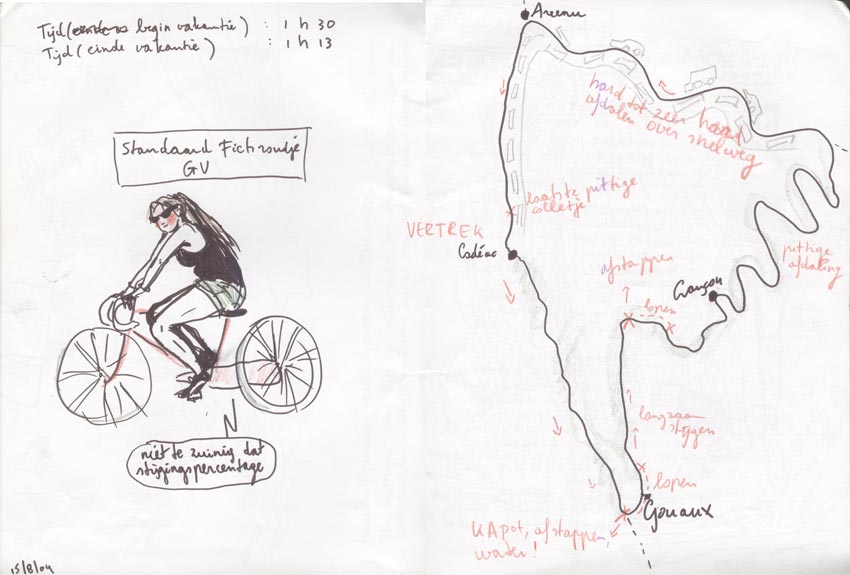 Tijd (eindens begin vakantie) : 1 h 30
Tijd (einde vakantie) : 1 h 13
Standaard Fietsrondje
GV
niet te zuinig dat
stijgingspercentage
15/8/04
Arreau
hard tot zeer hard
afdalen over snelweg
laatste pittige
colletje
VERTREK
Cadéac
pittige
afdaling
afstappen
Grançon
lopen
langzaam
stijgen
lopen
Gouaux
KApot, afstappen,
water!